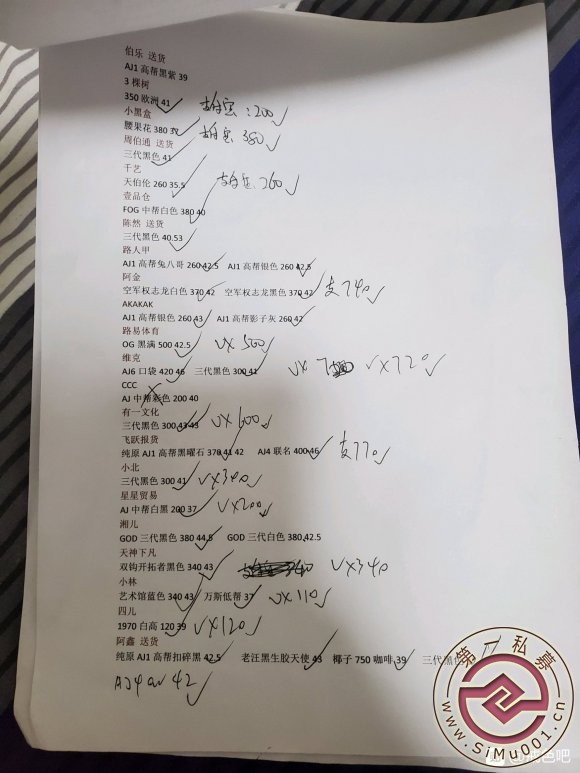 伯乐 送货
AJ1 高帮黑紫 39
3 棵树
350 欧洲 41 : 200
小黑盒
腰果花 380 380
周伯通 送货
三代黑色 41
千艺
天伯伦 260 35.5 260
壹品仓
FOG 中帮白色 380 40
陈然 送货
三代黑色 40.53
路人甲
AJ1 高帮兔八哥 260 42.5 AJ1 高帮银色 260 42.5
阿金
空军权志龙白色 370 42 空军权志龙黑色 370 42 支740
AKAKAK
AJ1 高帮银色 260 43 AJ1 高帮影子灰 260 42
路易体育
OG 黑满 500 42.5 VX 500
维克
AJ6 口袋 420 46 三代黑色 300 41 VX 7 VX720
CCC
AJ 中帮彩色 200 40
有一文化
三代黑色 300 43 43 VX600
飞跃报货
纯原 AJ1 高帮黑曜石 370 41 42 AJ4 联名 400 46 支770
小北
三代黑色 300 41 VX340
星星贸易
AJ 中帮白黑 200 37 VX200
湘儿
GOD 三代黑色 380 44.5 GOD 三代白色 380 42.5
天神下凡
双钩开拓者黑色 340 43 VX340
小林
艺术馆蓝色 340 43 万斯低帮 37 VX110
四儿
1970 白高 120 39 VX120
阿鑫 送货
纯原 AJ1 高帮扣碎黑 42.5 老汪黑生胶天使 43 椰子 750 咖啡 39 三代黑色
AJ4 42
第一私募
www.SiMu001.cn
色吧